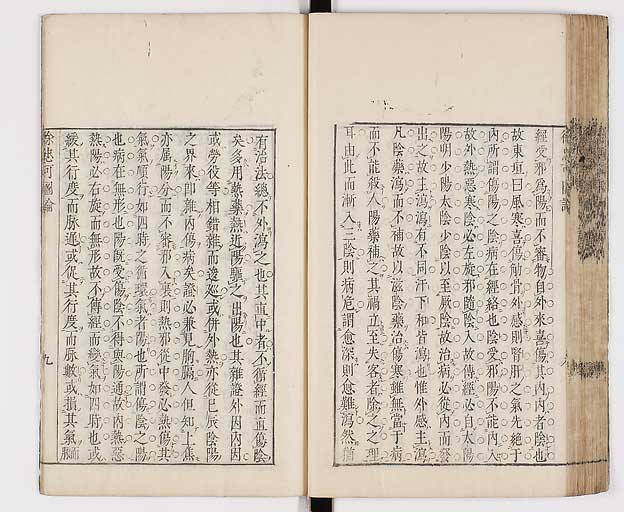 經受邪爲陽而不審物自外來喜傷其内内者陰也
故東垣曰風寒喜傷觔骨外感則腎肝之氣先絶于
内所謂傷陽之陰病在經絡也陰受邪陽不能内入
故外熱惡寒陰必左旋邪隨陰入故傳經必自太陽
陽明少陽太陰少陰以至厥陰故治病必從内而發
出之故主瀉瀉有不同汗下和皆瀉也惟外感主瀉
凡陰藥瀉而不補故以滋陰藥治傷寒雖無當于病
而不能殺人陽藥補之其禍立至夫客者除之之理
耳由此而漸入三陰則病危謂愈深則愈難瀉然
有治法總不外瀉之也其直中者不循經而直傷陰
矣多用熱藥熱近陽驅之出陽也其雜證外因内因
或勞役等相錯雜而邊或併外熱亦從巳辰陰陽
之界來卽雜内傷病矣證必兼見胸膈人但知上焦
亦属陽分而不審邪入裏則熱邪從中發必熱傷其
氣氣順行如四時之循環氣者陽也所謂傷陰之陽
也病在無形也陽旣受傷陰不得與陽通故内熱惡
熱陽必右旋而無形故不傳經而變氣如四時也或
緩其行度而脉遲或促其行度而脉數或損其氣而脈
九